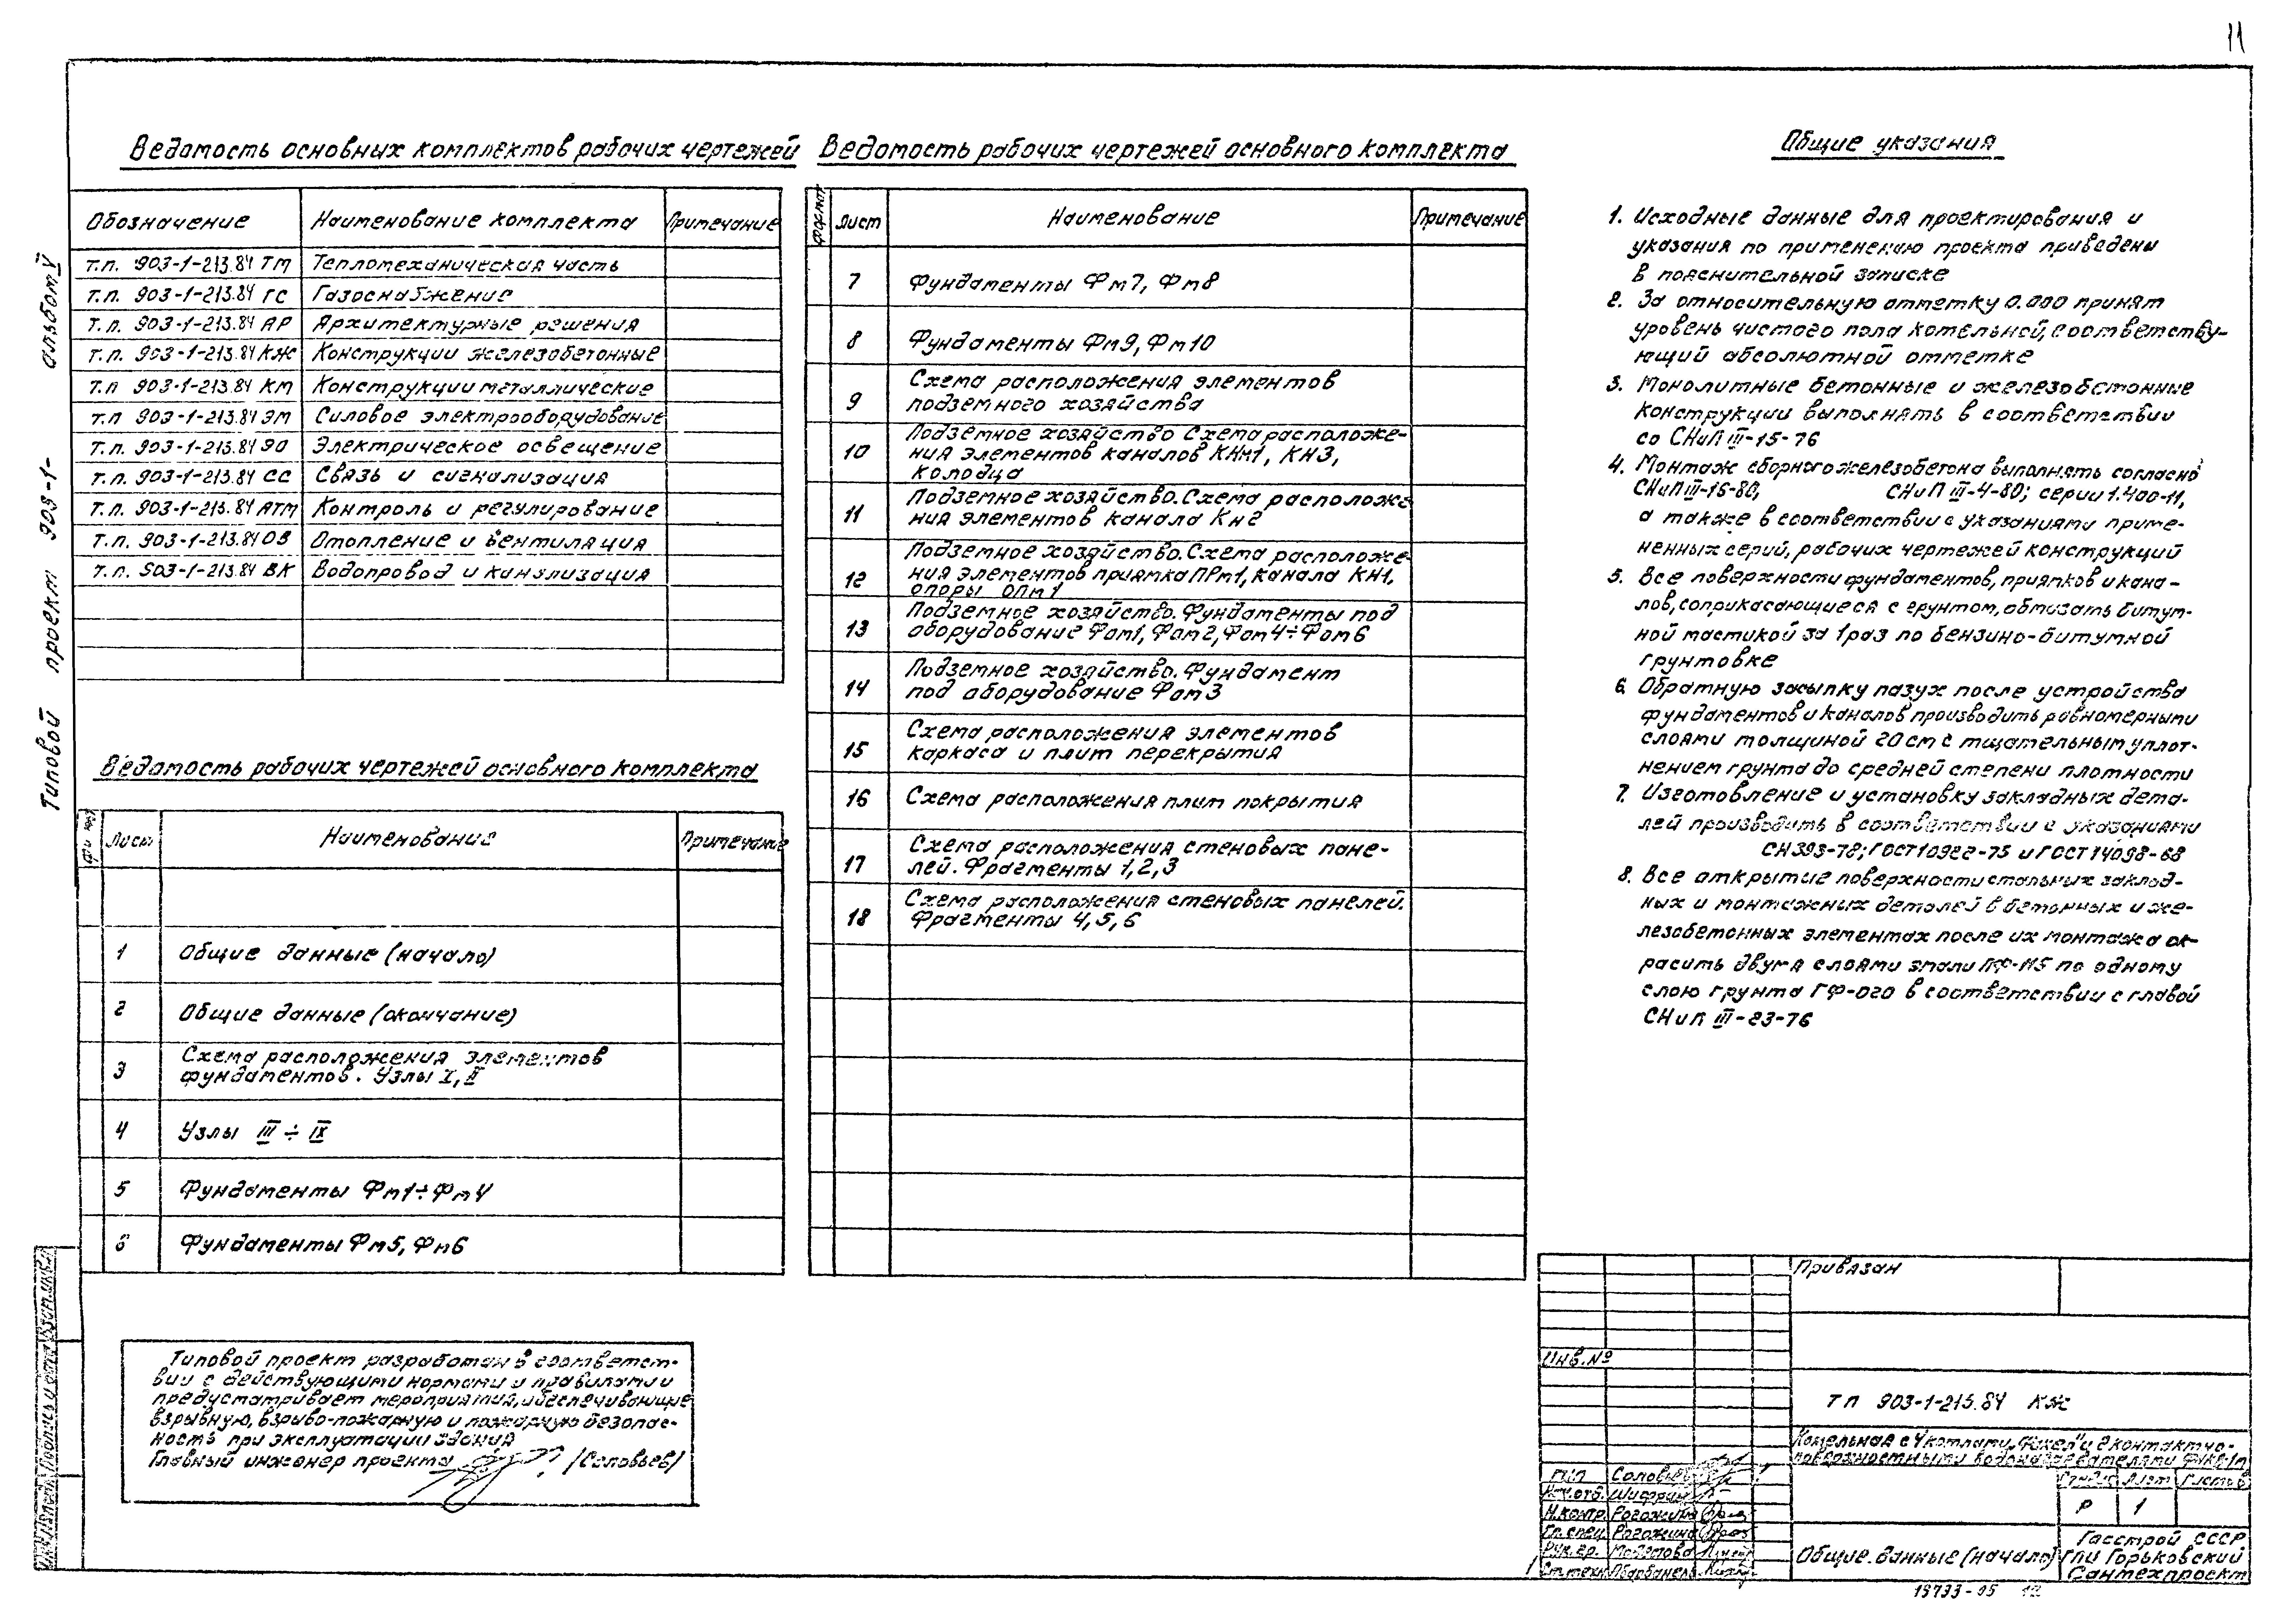 11
Типовой проект 903-1- альбом V
Ведомость основных комплектов рабочих чертежей
Обозначение Наименование комплекта Примечание
т.п. 903-1-213.84 ТМ Тепломеханическая часть
т.п. 903-1-213.84 ГС Газоснабжение
т.п. 903-1-213.84 АР Архитектурные решения
т.п. 903-1-213.84 КЖ Конструкции железобетонные
т.п 903-1-213.84 КМ Конструкции металлические
т.п 903-1-213.84 ЭМ Силовое электрооборудование
т.п. 903-1-213.84 ЭО Электрическое освещение
т.п. 903-1-213.84 СС Связь и сигнализация
т.п. 903-1-213.84 АТМ Контроль и регулирование
т.п. 903-1-213.84 ОВ Отопление и вентиляция
т.п. 903-1-213.84 ВК Водопровод и канализация
Ведомость рабочих чертежей основного комплекта
Лист Наименование Примечание
1 Общие данные (начало)
2 Общие данные (окончание)
3 Схема расположения элементов
фундаментов. Узлы I, II
4 Узлы III ÷ IX
5 Фундаменты Фм1÷Фм4
6 Фундаменты Фм5, Фм6
Типовой проект разработан в соответст-
вии с действующими нормами и правилами и
предусматривает мероприятия, обеспечивающие
взрывную, взрыво-пожарную и пожарную безопас-
ность при эксплуатации здания
Главный инженер проекта (Соловьев)
Ведомость рабочих чертежей основного комплекта
Формат Лист Наименование Примечание
7 Фундаменты Фм7, Фм8
8 Фундаменты Фм9, Фм10
9 Схема расположения элементов
подземного хозяйства
10 Подземное хозяйство Схема расположе-
ния элементов каналов КНм1, КН3,
колодца
11 Подземное хозяйство. Схема расположе-
ния элементов канала Кн2
12 Подземное хозяйство. Схема расположе-
ния элементов приямка ПРм1, канала КН1,
опоры ОПм1
13 Подземное хозяйство. Фундаменты под
оборудование Фом1, Фом2, Фом4÷Фом6
14 Подземное хозяйство. Фундамент
под оборудование Фом3
15 Схема расположения элементов
каркаса и плит перекрытия
16 Схема расположения плит покрытия
17 Схема расположения стеновых пане-
лей. Фрагменты 1, 2, 3
18 Схема расположения стеновых панелей.
Фрагменты 4, 5, 6
Общие указания
1. Исходные данные для проектирования и
указания по применению проекта приведены
в пояснительной записке
2. За относительную отметку 0.000 принят
уровень чистого пола котельной, соответству-
ющий абсолютной отметке
3. Монолитные бетонные и железобетонные
конструкции выполнять в соответствии
со СНиП III-15-76
4. Монтаж сборного железобетона выполнять согласно
СНиП III-16-80, СНиП III-4-80; серии 1.400-11,
а также в соответствии с указаниями приме-
ненных серий, рабочих чертежей конструкций
5. Все поверхности фундаментов, приямков и кана-
лов, соприкасающиеся с грунтом, обмазать битум-
ной мастикой за 1 раз по бензино-битумной
грунтовке
6. Обратную засыпку пазух после устройства
фундаментов и каналов производить равномерными
слоями толщиной 20 см с тщательным уплот-
нением грунта до средней степени плотности
7. Изготовление и установку закладных дета-
лей производить в соответствии с указаниями
СН 393-78; ГОСТ 10922-75 и ГОСТ 14098-68
8. Все открытые поверхности стальных заклад-
ных и монтажных деталей в бетонных и же-
лезобетонных элементах после их монтажа ок-
расить двумя слоями эмали ПФ-115 по одному
слою грунта ГФ-020 в соответствии с главой
СНиП III-23-76
Привязан
Инв. №
ТП 903-1-213.84 КЖ
Котельная с 4 котлами „Факел" и 2 контактно-
поверхностными водонагревателями ФНКВ-1м
Стадия Лист Листов
Р 1
ГИП Соловьев
Нач. отд. Шифрин
Н. контр. Рогожина
Гл. спец. Рогожина
Рук. гр.
Ст. техн.
Общие данные (начало)
Госстрой СССР
ГПИ Горьковский
Сантехпроект
19733-05 12